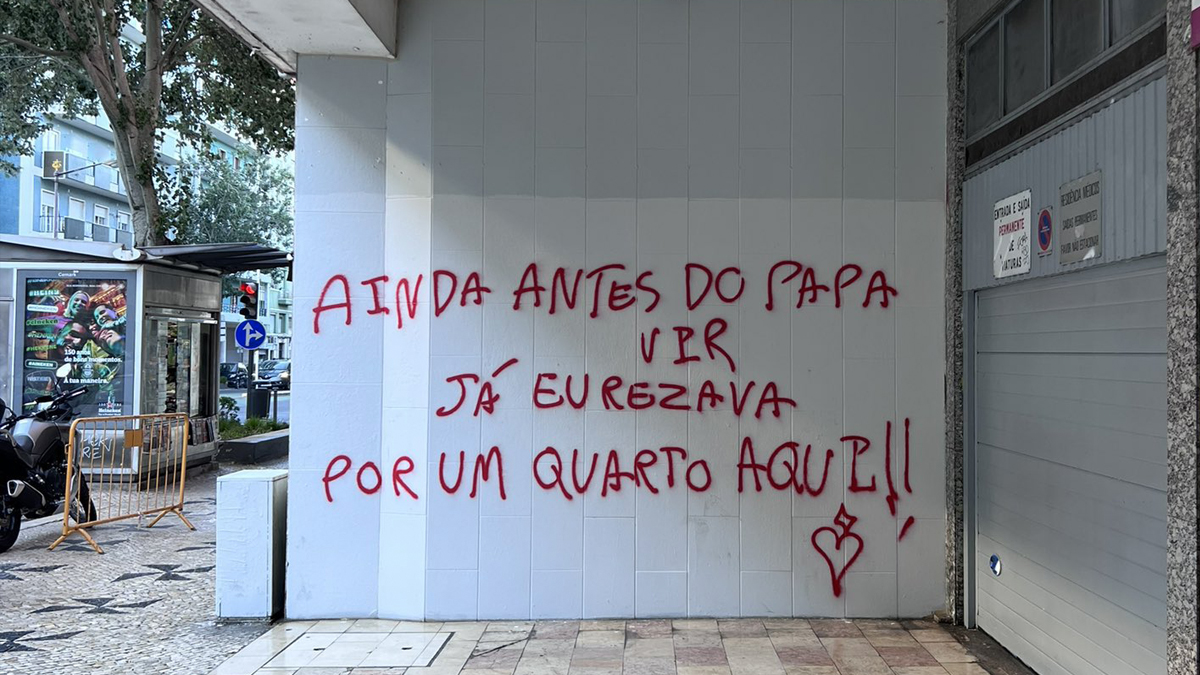 AINDA ANTES DO PAPA
VIR
JÁ EU REZAVA
POR UM QUARTO AQUI!!
ENTRADA E SAÍDA
PERMANENTE
DE
VIATURAS
RESIDÊNCIA MÉDICOS
SAIDAS PERMANENTES
FAVOR NÃO ESTACIONAR
150 anos
de bons momentos.
À tua maneira.
Heineken